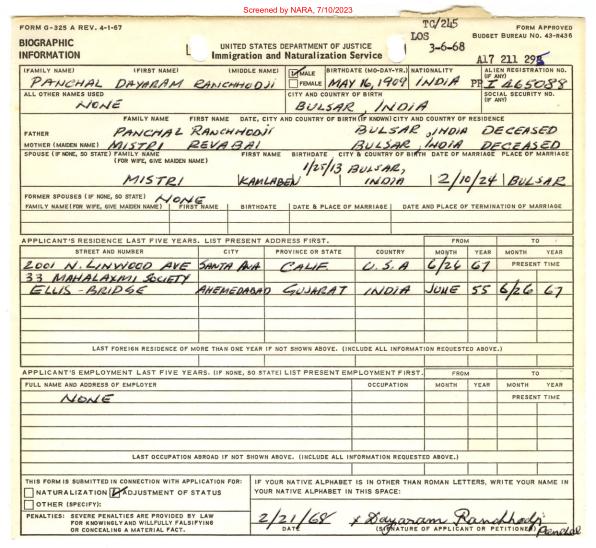 Screened by NARA, 7/10/2023
FORM G-325 A REV. 4-1-67
TG/245
FORM APPROVED
BUDGET BUREAU NO. 43-R436
LOS
3-6-68
BIOGRAPHIC
INFORMATION
UNITED STATES DEPARTMENT OF JUSTICE
Immigration and Naturalization Service
A17 211 295
(FAMILY NAME) (FIRST NAME) (MIDDLE NAME) MALE FEMALE BIRTHDATE (MO-DAY-YR.) NATIONALITY ALIEN REGISTRATION NO. (IF ANY)
PANCHAL DAYARAM RANCHHODJI MAY 16, 1909 INDIA PP I 465088
ALL OTHER NAMES USED CITY AND COUNTRY OF BIRTH SOCIAL SECURITY NO. (IF ANY)
NONE BULSAR, INDIA
FAMILY NAME FIRST NAME DATE, CITY AND COUNTRY OF BIRTH (IF KNOWN) CITY AND COUNTRY OF RESIDENCE
FATHER PANCHAL RANCHHODJI BULSAR, INDIA DECEASED
MOTHER (MAIDEN NAME) MISTRI REVABAI BULSAR, INDIA DECEASED
SPOUSE (IF NONE, SO STATE) FAMILY NAME (FOR WIFE, GIVE MAIDEN NAME) FIRST NAME BIRTHDATE CITY & COUNTRY OF BIRTH DATE OF MARRIAGE PLACE OF MARRIAGE
MISTRI KAMLABEN 1/25/13 BULSAR, INDIA 2/10/24 BULSAR
FORMER SPOUSES (IF NONE, SO STATE) NONE
FAMILY NAME (FOR WIFE, GIVE MAIDEN NAME) FIRST NAME BIRTHDATE DATE & PLACE OF MARRIAGE DATE AND PLACE OF TERMINATION OF MARRIAGE
APPLICANT'S RESIDENCE LAST FIVE YEARS. LIST PRESENT ADDRESS FIRST. FROM TO
STREET AND NUMBER CITY PROVINCE OR STATE COUNTRY MONTH YEAR MONTH YEAR
2001 N. LINWOOD AVE SANTA ANA CALIF U.S.A 6/26 67 PRESENT TIME
33 MAHALAXMI SOCIETY
ELLIS-BRIDGE AHEMEDABAD GUJARAT INDIA JUNE 55 6/26 67
LAST FOREIGN RESIDENCE OF MORE THAN ONE YEAR IF NOT SHOWN ABOVE. (INCLUDE ALL INFORMATION REQUESTED ABOVE.)
APPLICANT'S EMPLOYMENT LAST FIVE YEARS. (IF NONE, SO STATE) LIST PRESENT EMPLOYMENT FIRST. FROM TO
FULL NAME AND ADDRESS OF EMPLOYER OCCUPATION MONTH YEAR MONTH YEAR
NONE PRESENT TIME
LAST OCCUPATION ABROAD IF NOT SHOWN ABOVE. (INCLUDE ALL INFORMATION REQUESTED ABOVE.)
THIS FORM IS SUBMITTED IN CONNECTION WITH APPLICATION FOR:
NATURALIZATION ADJUSTMENT OF STATUS
OTHER (SPECIFY):
IF YOUR NATIVE ALPHABET IS IN OTHER THAN ROMAN LETTERS, WRITE YOUR NAME IN
YOUR NATIVE ALPHABET IN THIS SPACE:
PENALTIES: SEVERE PENALTIES ARE PROVIDED BY LAW
FOR KNOWINGLY AND WILLFULLY FALSIFYING
OR CONCEALING A MATERIAL FACT.
2/21/68 x Dayaram Ranchhodji
Panchal
DATE (SIGNATURE OF APPLICANT OR PETITIONER)